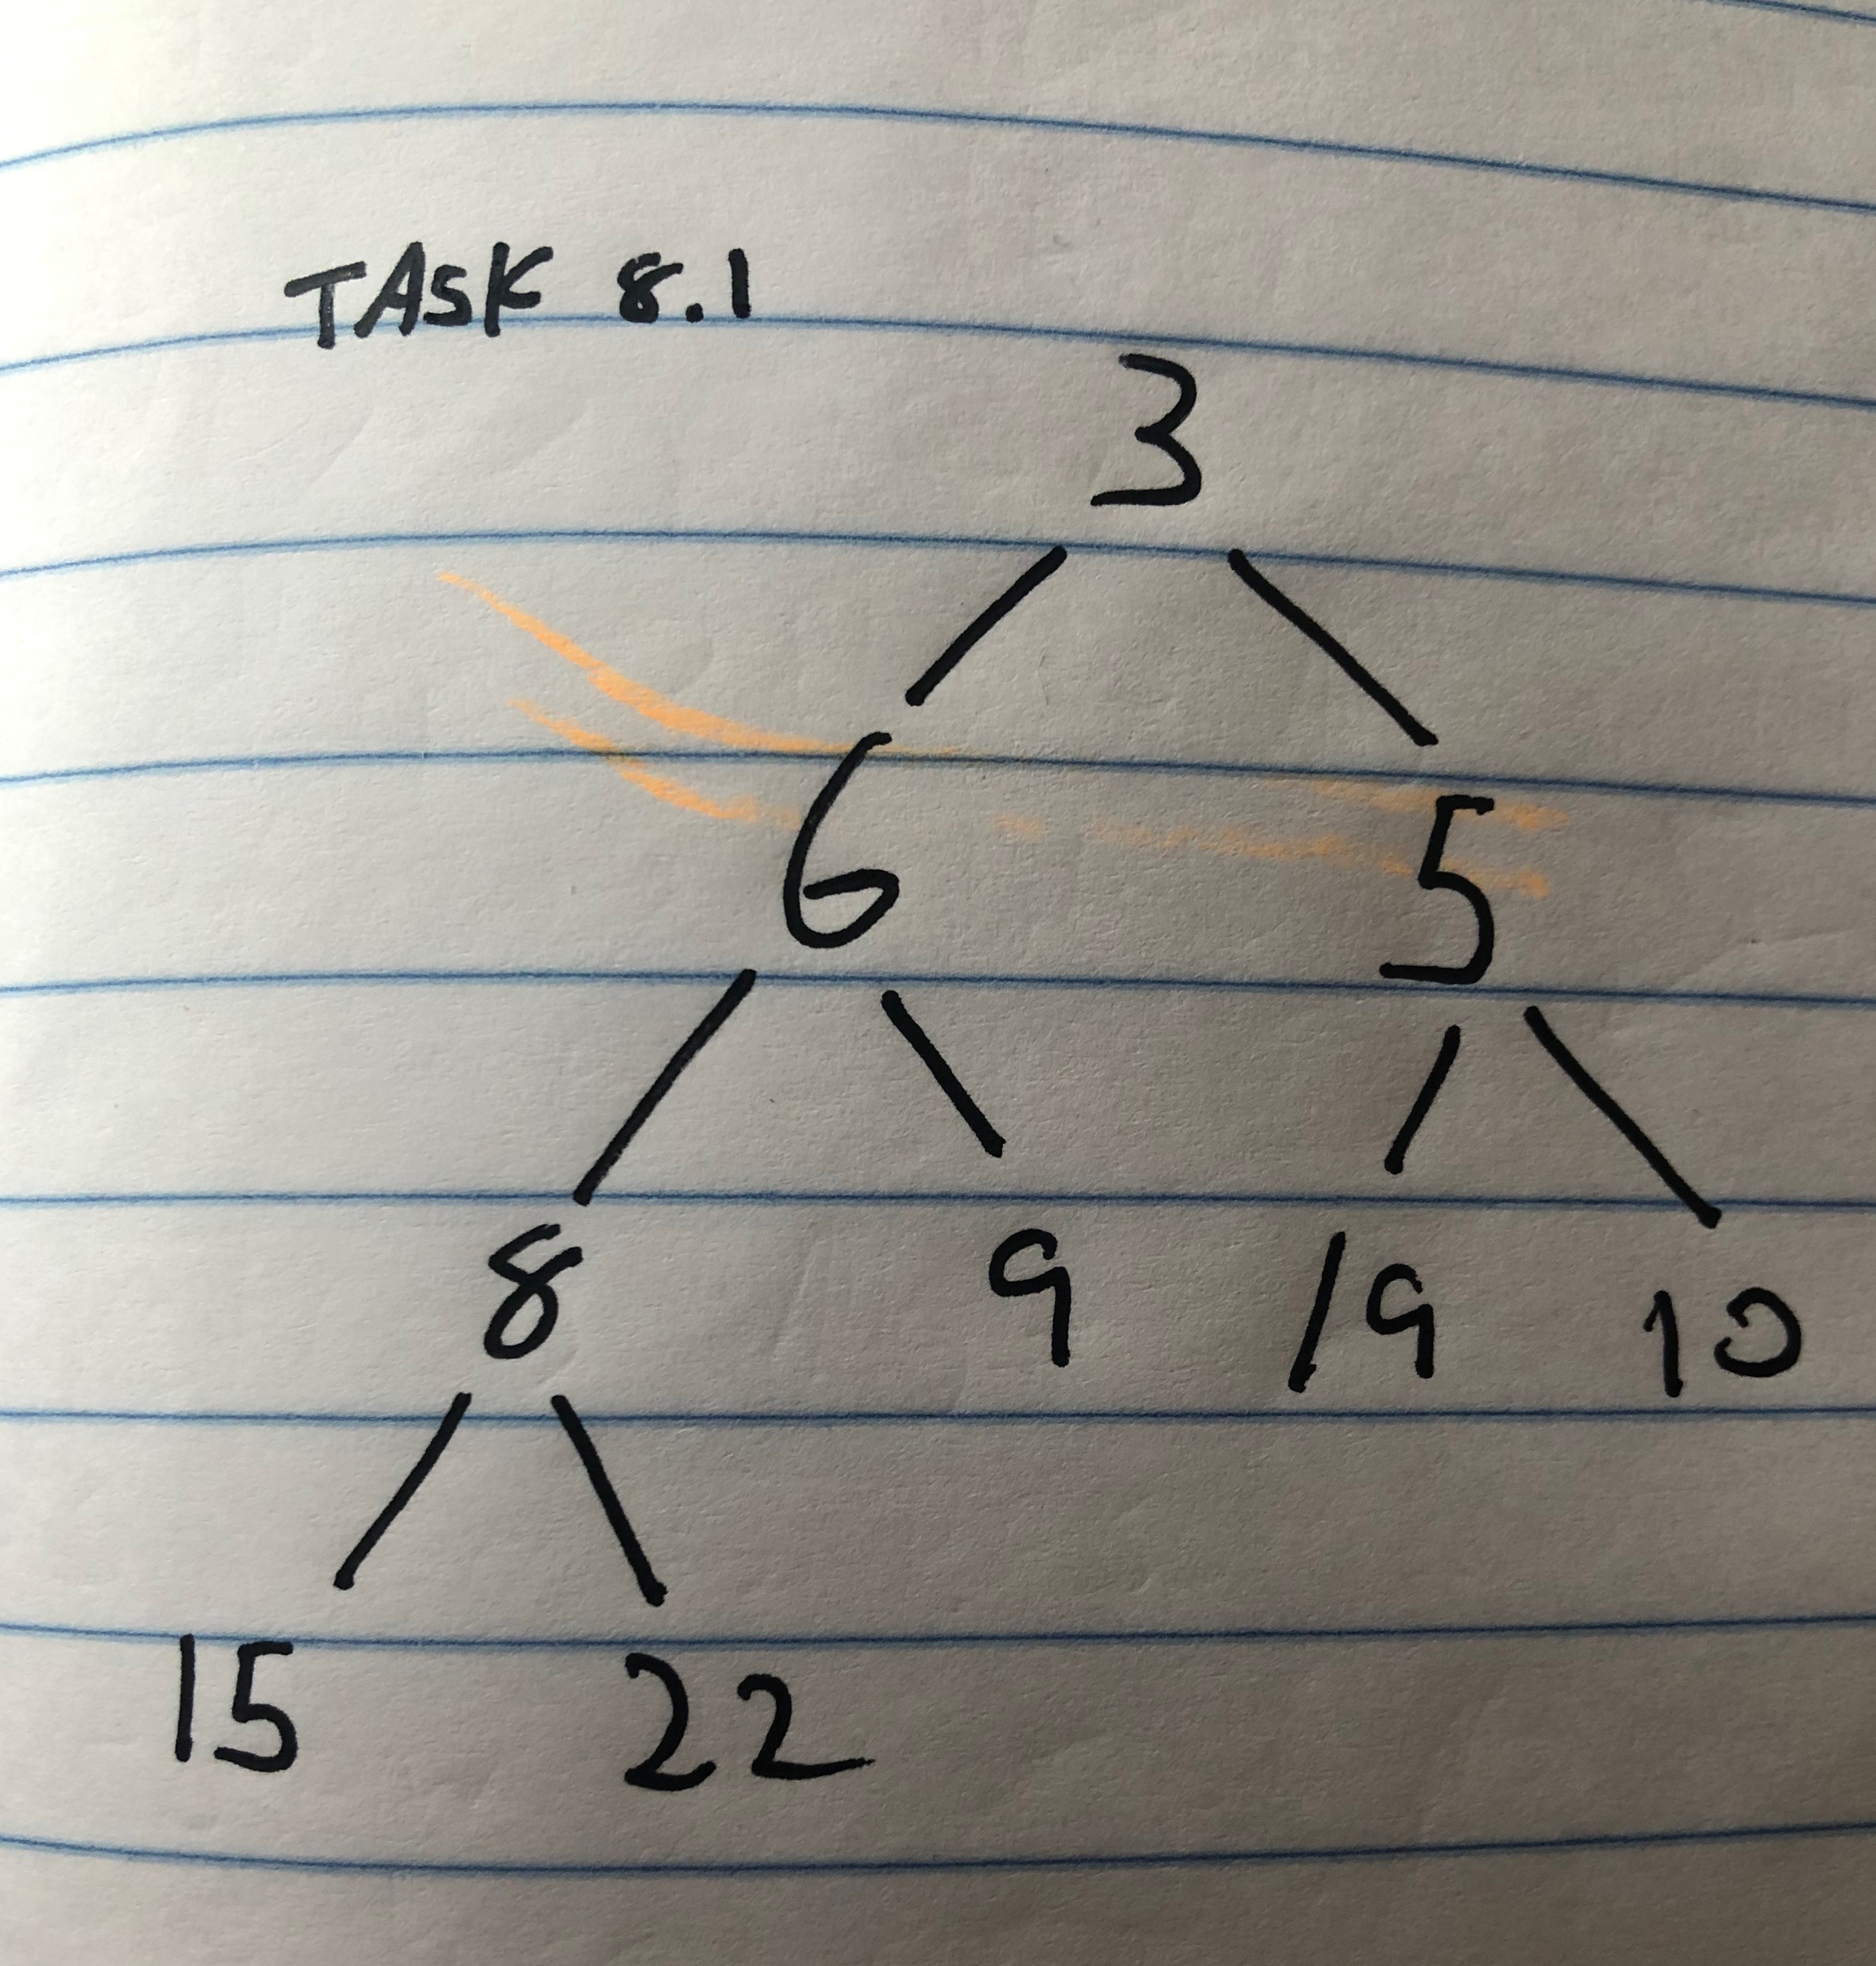 TASK 8.1
3
6 5
8 9 19 10
15 22